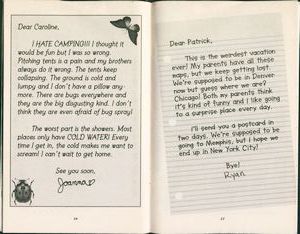 Dear Caroline,
I HATE CAMPING!!!! I thought it
would be fun but I was wrong.
Pitching tents is a pain and my brothers
always do it wrong. The tents keep
collapsing. The ground is cold and
lumpy and I don't have a pillow any-
more. There are bugs everywhere and
they are the big disgusting kind. I don't
think they are even afraid of bug spray!
The worst part is the showers. Most
places only have COLD WATER! Every
time I get in, the cold makes me want to
scream! I can't wait to get home.
See you soon,
Joanna
Dear Patrick,
This is the weirdest vacation
ever! My parents have all these
maps, but we keep getting lost.
We're supposed to be in Denver
now but guess where we are?
Chicago! Both my parents think
it's kind of funny and I like going
to a surprise place every day.
I'll send you a postcard in
two days. We're supposed to be
going to Memphis, but I hope we
end up in New York City!
Bye!
Ryan